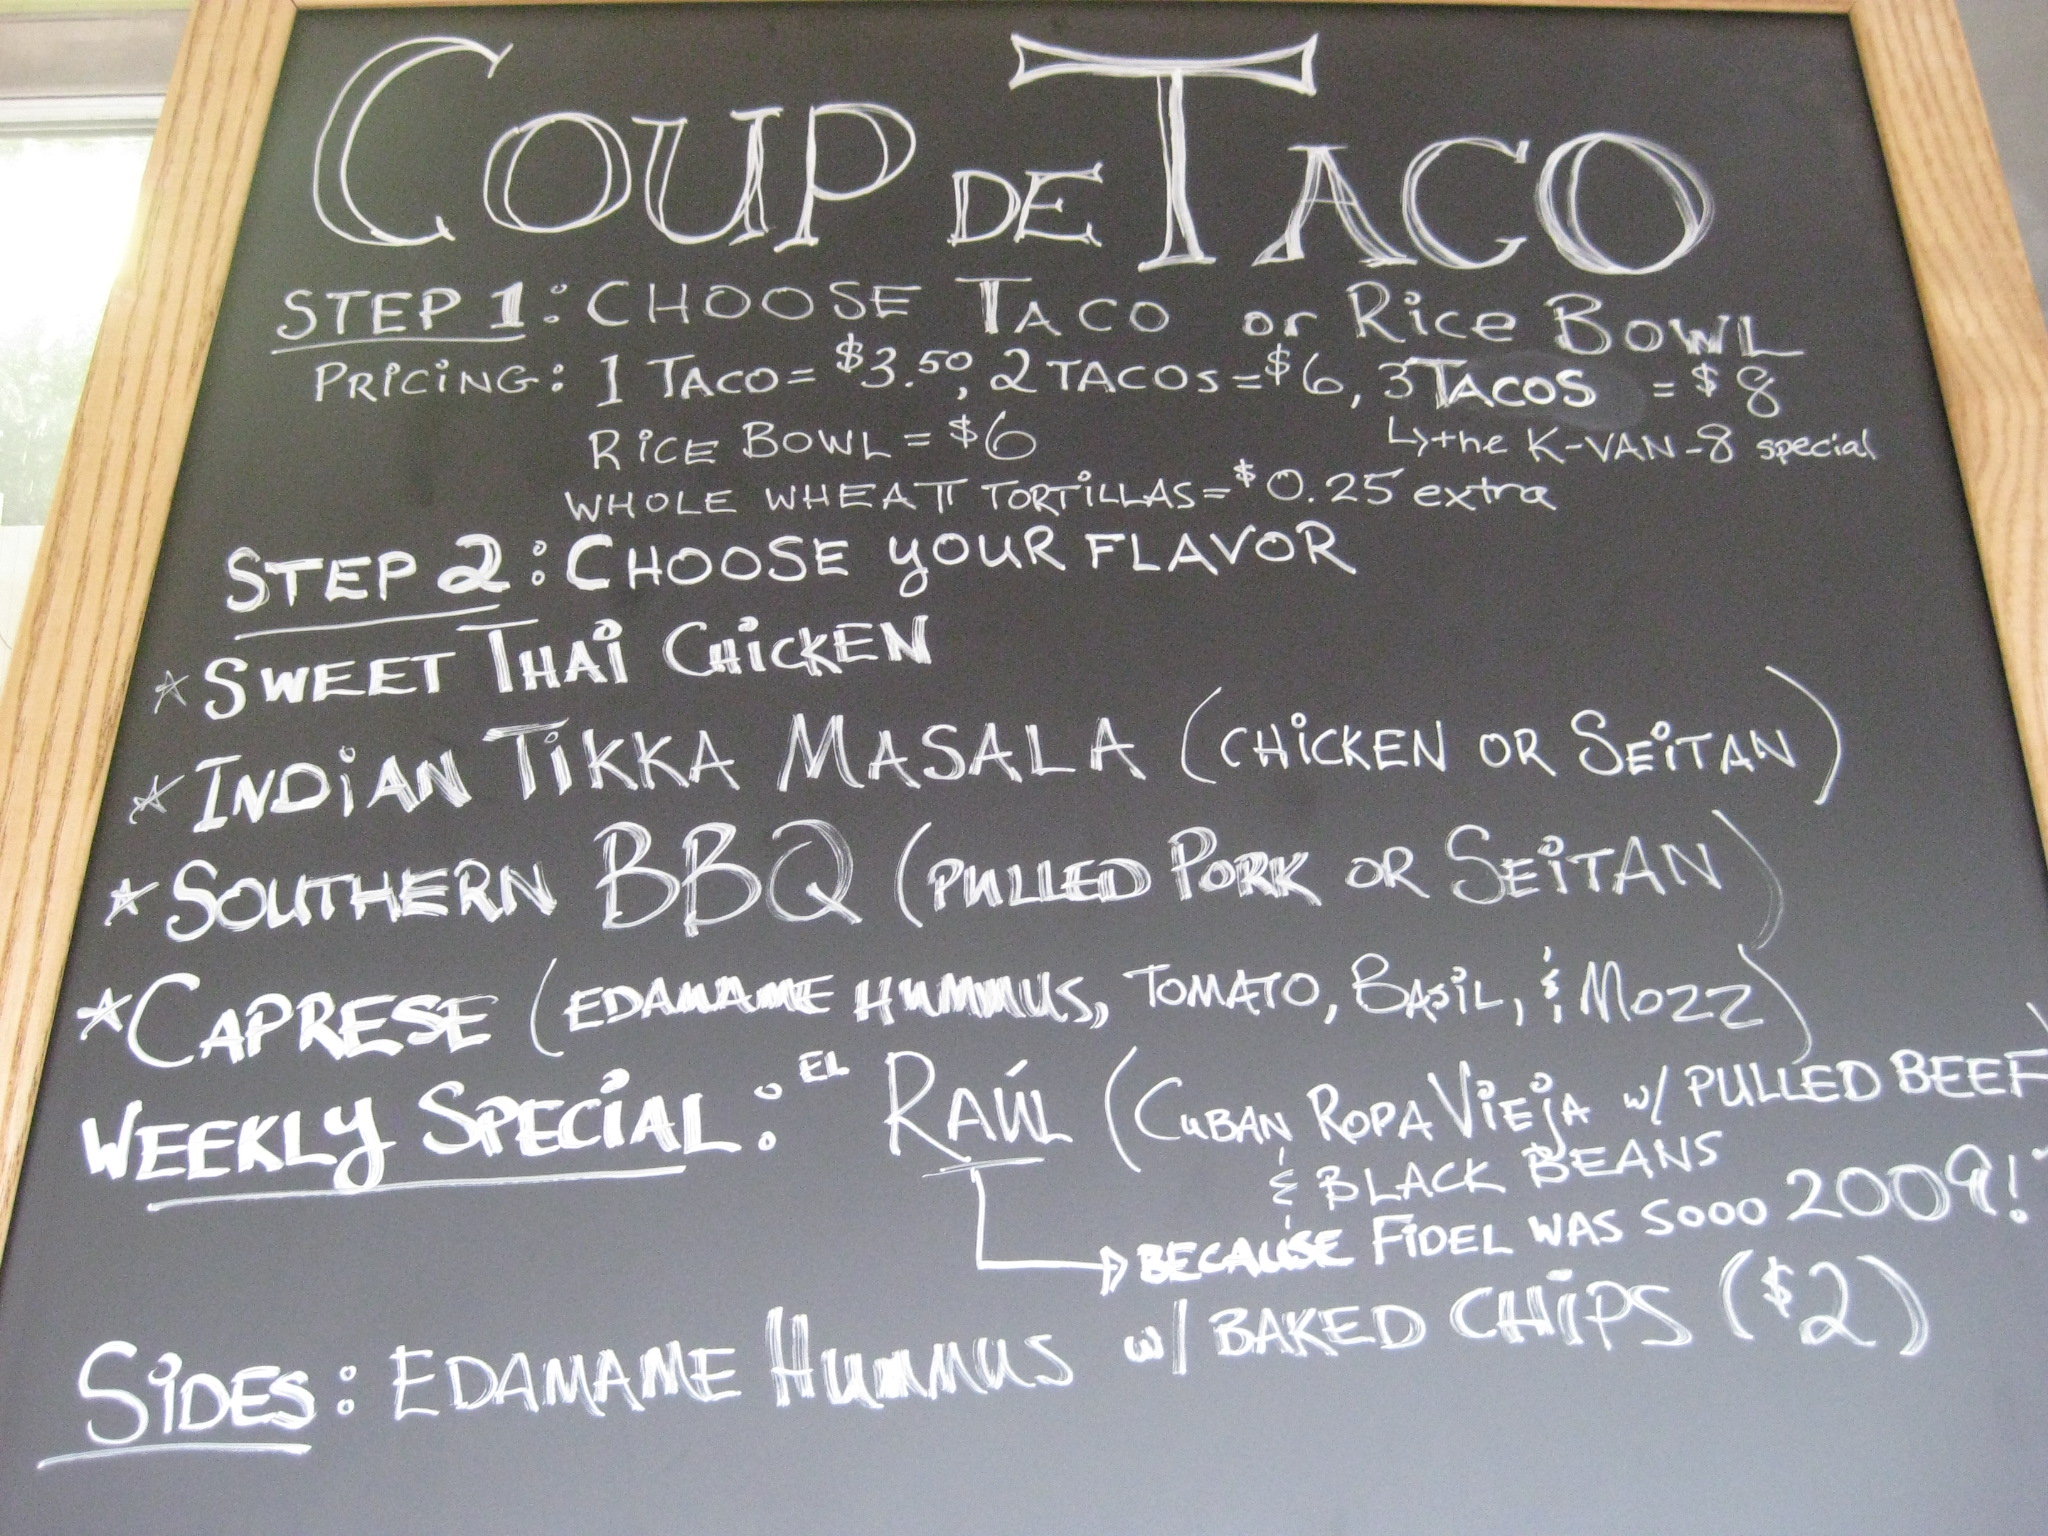 COUP DE TACO
STEP 1: CHOOSE TACO or RiCe BOWL
PRiCiNG: 1 TACO = $3.50, 2 TACOS = $6, 3 TACOS = $8
RiCE BOWL = $6 ↳ the K-VAN-8 special
WHOLE WHEAT TORTiLLAS = $0.25 extra
STEP 2: CHOOSE yOUR FLAVOR
☆ SWEET THAi CHiCKEN
☆ INDiAN TiKKA MASALA (CHiCKEN OR SEiTAN)
☆ SOUTHERN BBQ (PULLED PORK OR SEiTAN)
☆ CAPRESE (EDAMAME HUMMUS, TOMATO, BASiL, & MOZZ)
WEEKLy SPECiAL: EL RAÚL (CUBAN ROPA ViEjA w/ PULLED BEEF
& BLACK BEANS
BECAUSE FiDEL WAS SOOO 2009!
SiDES: EDAMAME HUMMUS w/ BAKED CHiPS ($2)